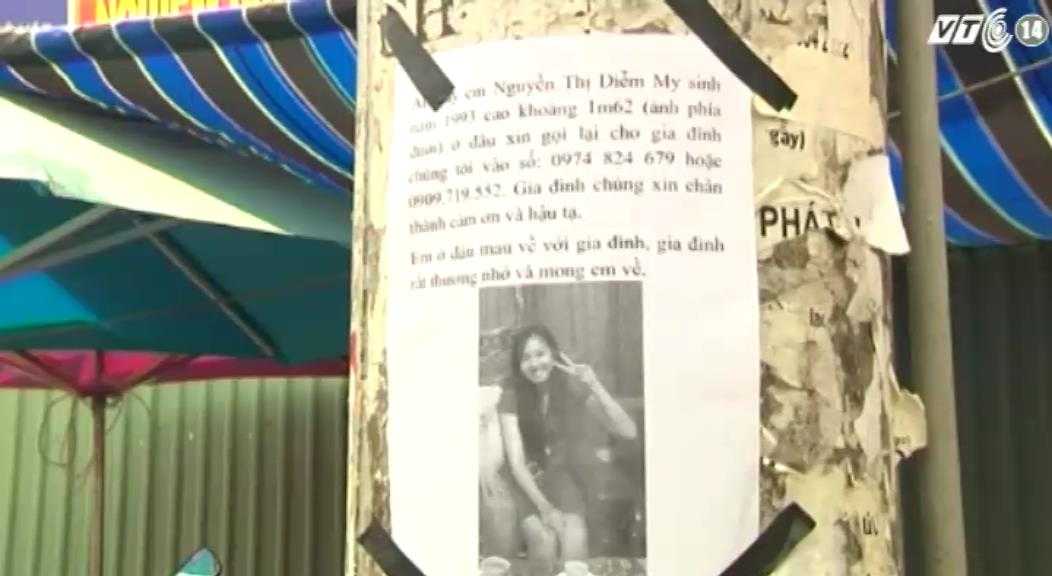 VTC 14
NH
em Nguyễn Thị Diễm My sinh
năm 1993 cao khoảng 1m62 (ảnh phía
dưới) ở đâu xin gọi lại cho gia đình
chúng tôi vào số: 0974 824 679 hoặc
0909.719.552. Gia đình chúng xin chân
thành cảm ơn và hậu tạ.
Em ở đâu mau về với gia đình, gia đình
rất thương nhớ và mong em về.
gay)
PHÁT